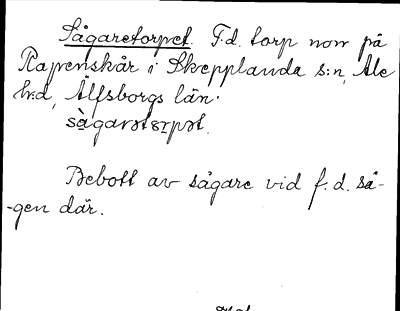 Sågaretorpet. F.d. torp norr på
Rapenskår i Skepplanda s:n, Ale
hd, Älfsborgs län.
sàgarətɔrpət.
Bebott av sågare vid f.d. så-
-gen där.